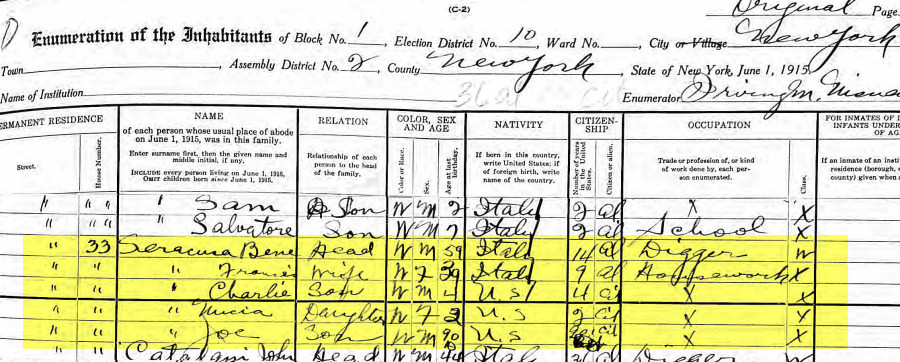 (C-2)
Original Page
Enumeration of the Inhabitants of Block No. 1, Election District No. 10, Ward No. , City or Village New York
Town , Assembly District No. 2, County New York, State of New York, June 1, 1915.
Name of Institution Enumerator Irving M.
ERMANENT RESIDENCE
Street.
House Number.
NAME
of each person whose usual place of abode
on June 1, 1915, was in this family.
Enter surname first, then the given name and
middle initial, if any.
INCLUDE every person living on June 1, 1915.
OMIT children born since June 1, 1915.
RELATION
Relationship of each
person to the head
of the family.
COLOR, SEX
AND AGE
Color or Race.
Sex.
Age at last
birthday.
NATIVITY
If born in this country,
write United States; if
of foreign birth, write
name of the country.
CITIZEN-
SHIP
Number of years
in the United
States.
Citizen or alien.
OCCUPATION
Trade or profession of, or kind
of work done by, each per-
son enumerated.
Class.
FOR INMATES OF I
INFANTS UNDER
OF AG
If an inmate of an insti
residence (borough,
county) given when a
" " " " Sam Son W M 2 Italy 2 al X X
" " " Salvatore Son W M 7 Italy 2 al School X
" 33 Seracusa Bene Head W M 59 Italy 14 al Digger W
" " " Francis Wife W F 39 Italy 9 al Housework X
" " " Charlie Son W M 4 U.S 4 cit X X
" " " Daughter W F 2 U.S 2 cit X X
" " " Joe Son W M U.S cit X X
" " Catalani John Head W M Italy al Digger W